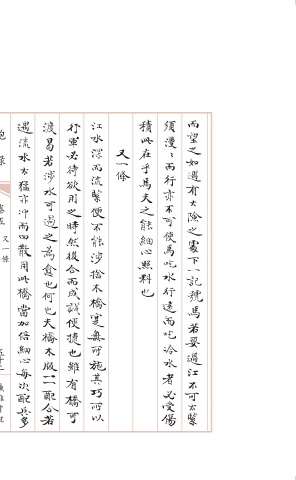 而望之如遇有大險之處下一記號馬若要過江不可太緊
須漫〻而行亦不可使馬吃水行遠而吃冷水者必受傷
積此在乎馬夫之能細心照料也
又一條
江水深而流緊便不能涉捨木橋寔無可施其巧所以
行軍必待欲用之時然後合而成誠便捷也雖有橋可
渡曷若涉水可過之為愈也何也夫橋木版二配合若
遇流水太猛亦沖而四散用此橋當加倍細心每次配兵多
卷五 又一條